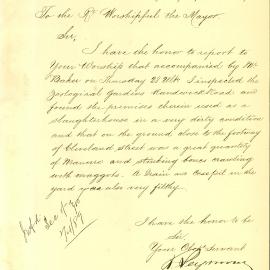 To the Rt Worshipful the Mayor
Sir,
I have the honor to report to
Your Worship that accompanied by Mr
Baker on Thursday 28 Ult I inspected the
Zoological Gardens Randwick Road and
found the premises therein used as a
slaughterhouse in a very dirty condition
and that on the ground, close to the footway
of Cleveland Street was a great quantity
of Manure and stinking bones crawling
with maggots. A drain an cesspit in the
yard was also very filthy.
I have the honor to be
Sir
Your Obt Servant
Seymour